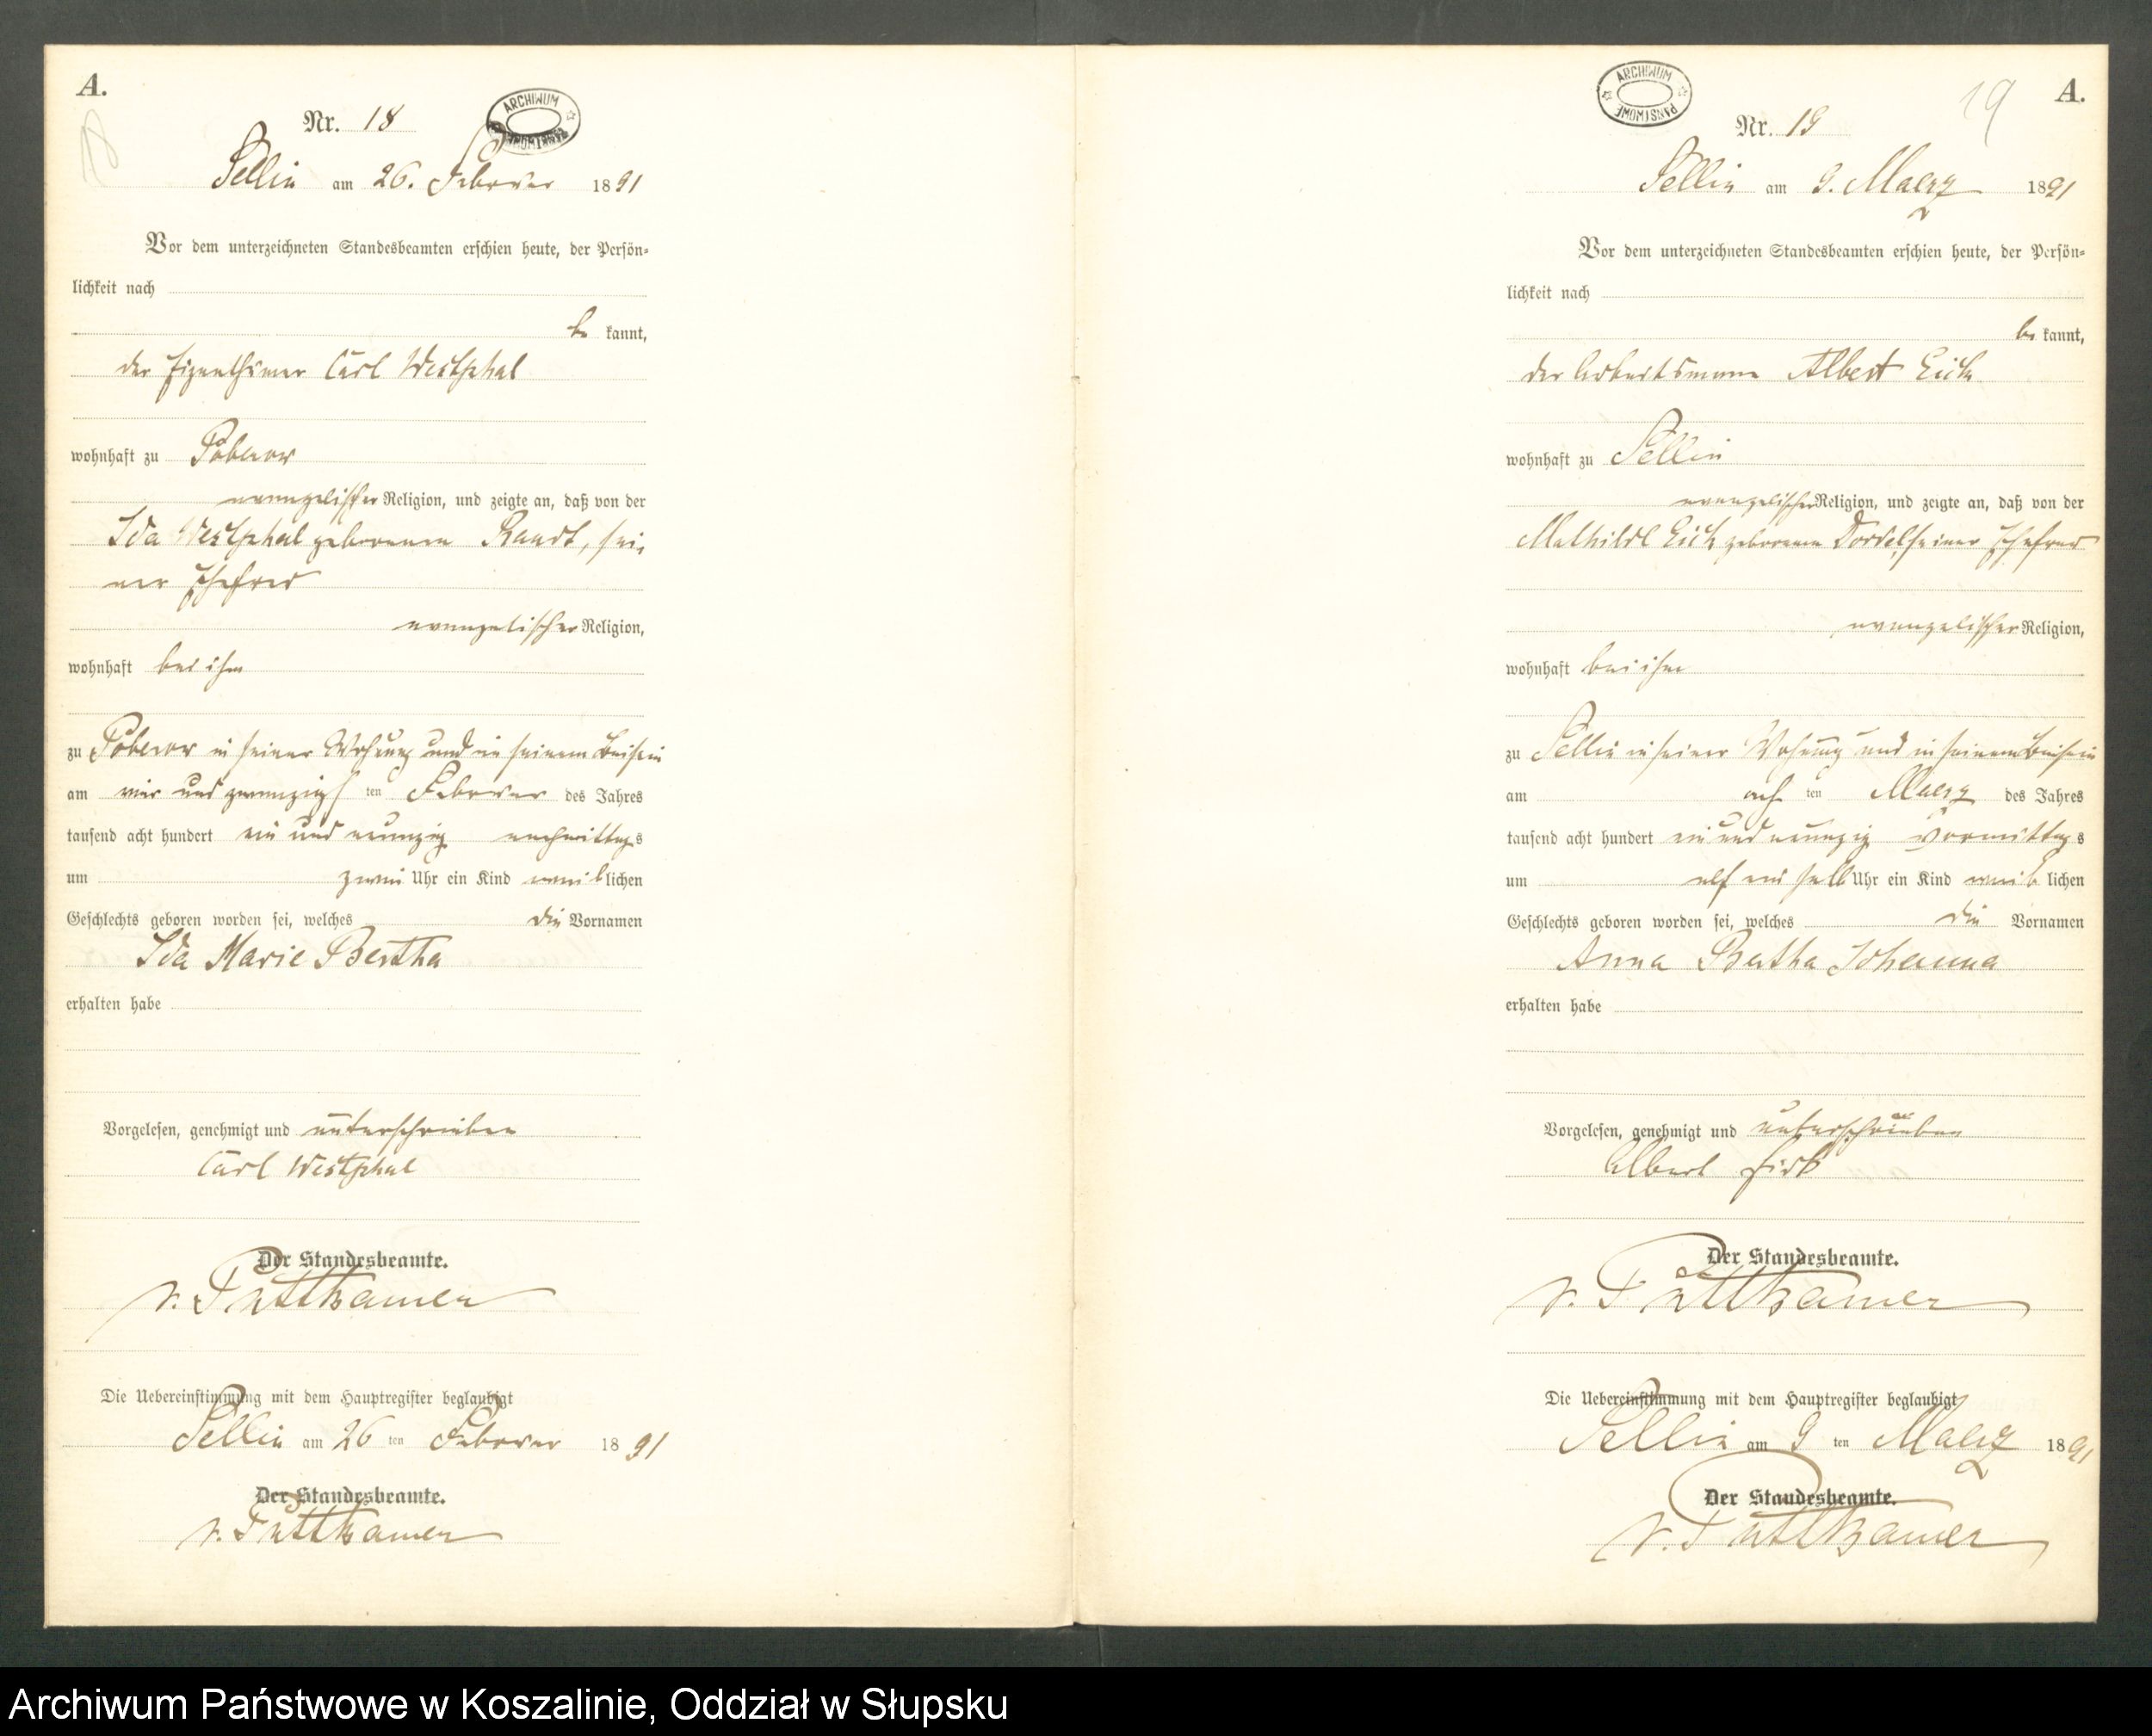 A.
18
Nr. 18
ARCHIWUM PAŃSTWOWE
Sellin am 26. Februar 1891
Vor dem unterzeichneten Standesbeamten erschien heute, der Persön-
lichkeit nach
be kannt,
der Eigenthümer Carl Westphal
wohnhaft zu Poberow
evangelischer Religion, und zeigte an, daß von der
Ida Westphal geborenen Raudt, sei-
ner Ehefrau
evangelischer Religion,
wohnhaft bei ihm
zu Poberow in seiner Wohnung und in seinem Beisein
am vier und zwanzigsten Februar des Jahres
tausend acht hundert ein und neunzig nachmittags
um zwei Uhr ein Kind weiblichen
Geschlechts geboren worden sei, welches die Vornamen
Ida Marie Bertha
erhalten habe
Vorgelesen, genehmigt und unterschrieben
Carl Westphal
Der Standesbeamte.
v. Puttkamer
Die Uebereinstimmung mit dem Hauptregister beglaubigt
Sellin am 26 ten Februar 1891
Der Standesbeamte.
v. Puttkamer
19
A.
ARCHIWUM PAŃSTWOWE
Nr. 19
Sellin am 9. Maerz 1891
Vor dem unterzeichneten Standesbeamten erschien heute, der Persön-
lichkeit nach
be kannt,
der Arbeitsmann Albert Eick
wohnhaft zu Sellin
evangelischer Religion, und zeigte an, daß von der
Mathilde Eick geborenen Dordel, seiner Ehefrau
evangelischer Religion,
wohnhaft bei ihm
zu Sellin in seiner Wohnung und in seinem Beisein
am achten Maerz des Jahres
tausend acht hundert ein und neunzig Vormittags
um elf ein halb Uhr ein Kind weiblichen
Geschlechts geboren worden sei, welches die Vornamen
Anna Bertha Johanna
erhalten habe
Vorgelesen, genehmigt und unterschrieben
Albert Eick
Der Standesbeamte.
v. Puttkamer
Die Uebereinstimmung mit dem Hauptregister beglaubigt
Sellin am 9 ten Maerz 1891
Der Standesbeamte.
v. Puttkamer
Archiwum Państwowe w Koszalinie, Oddział w Słupsku